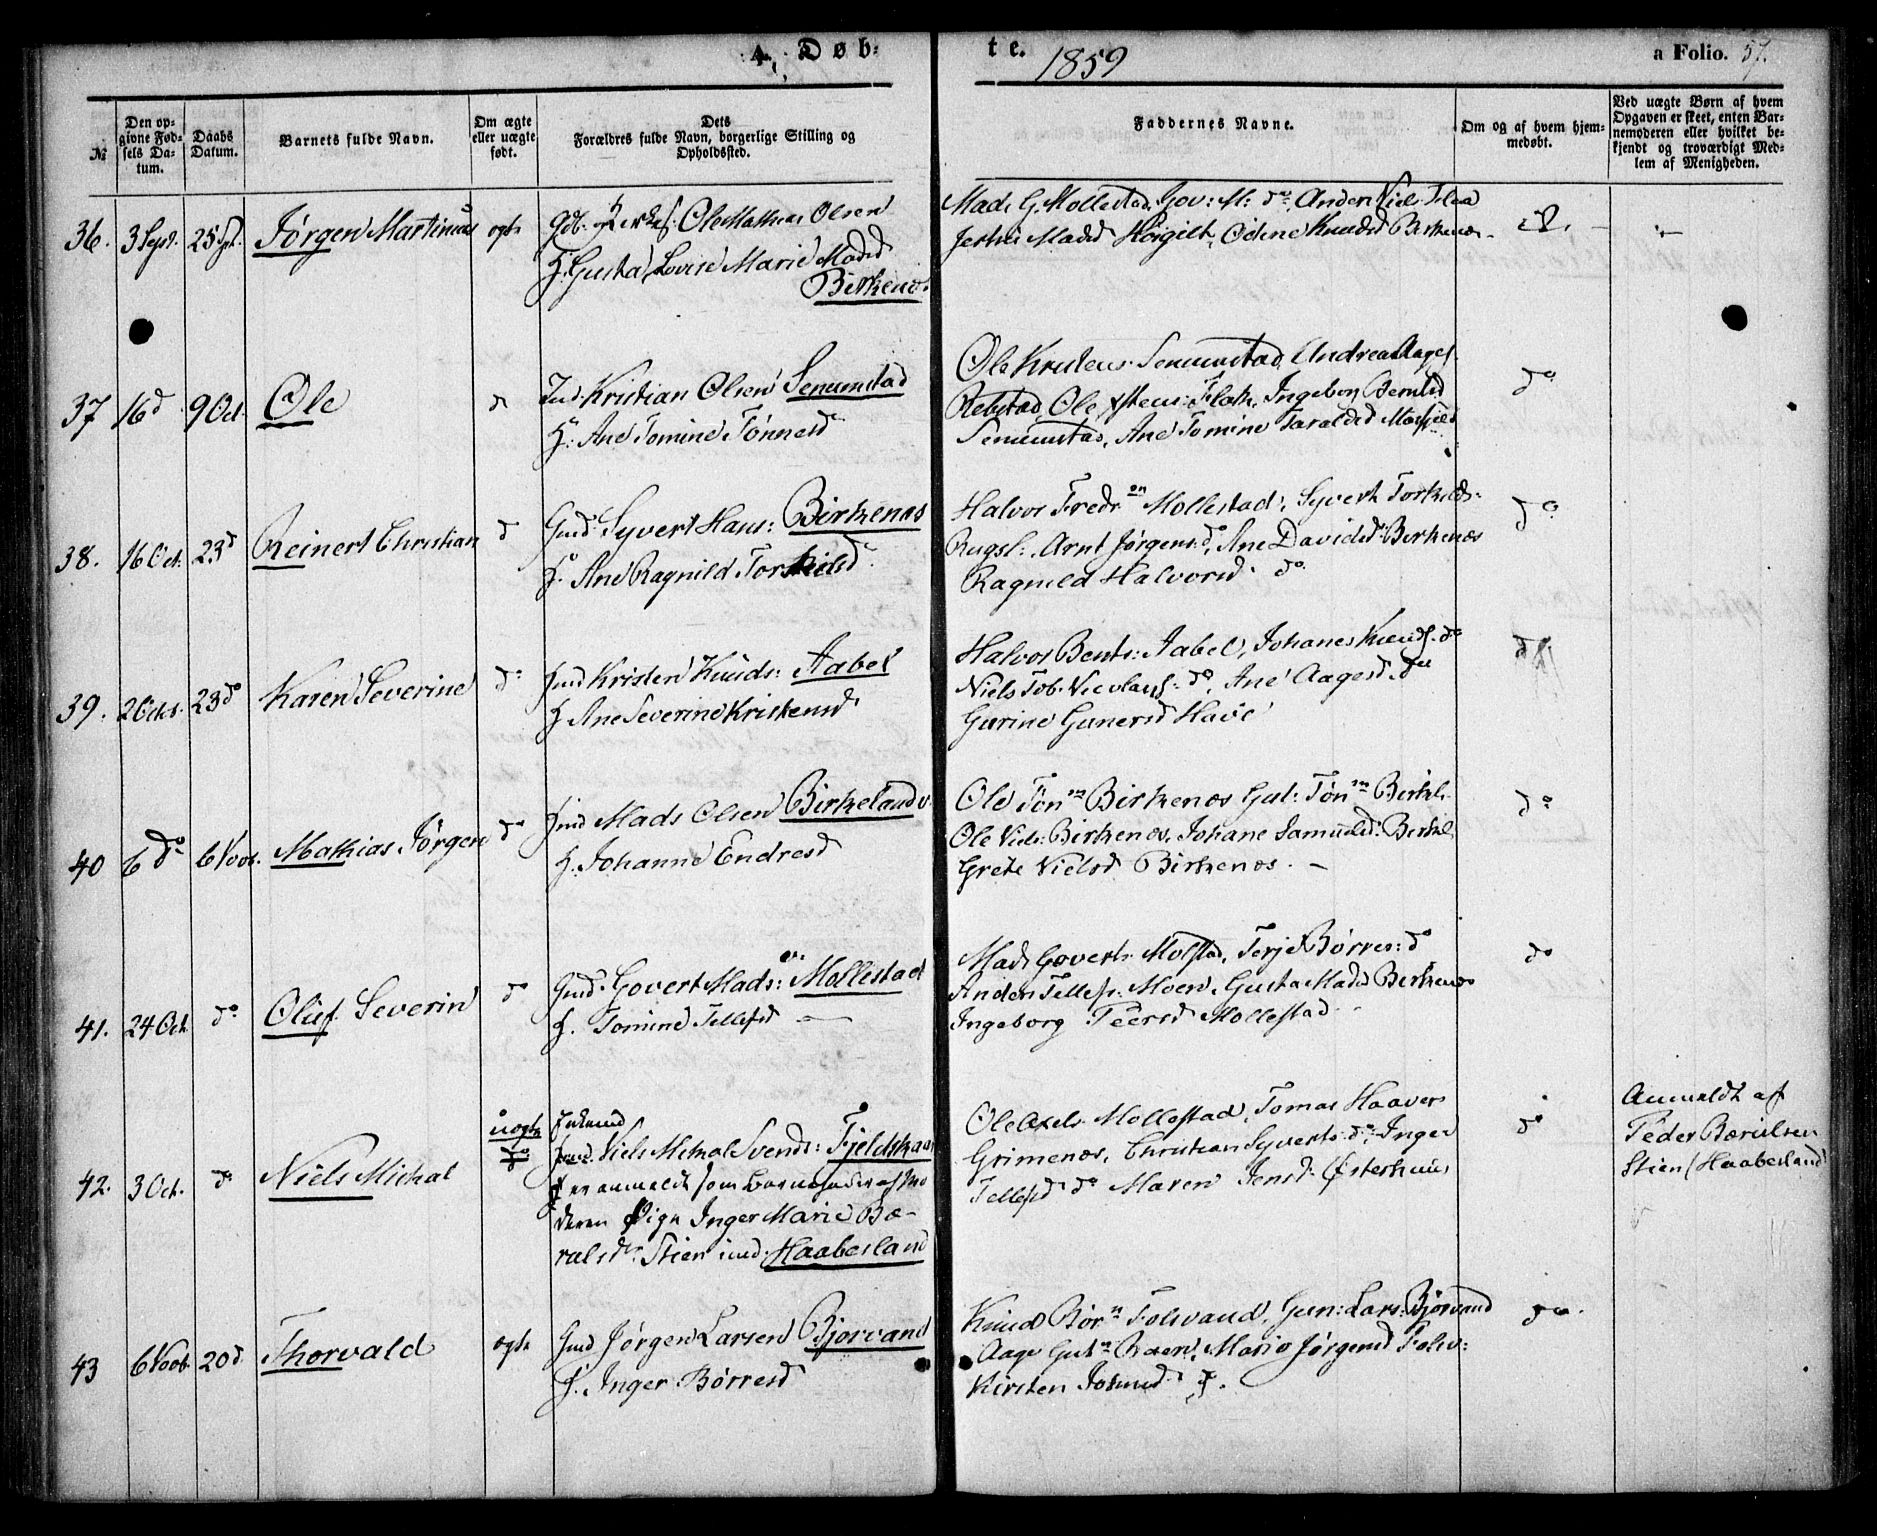 4. Døb-
te. 1859
a Folio. 57.
№
Den op-
givne Fød-
sels Da-
tum.
Daabs
Datum.
Barnets fulde Navn.
Om ægte
eller uægte
født.
Dets
Forældres fulde Navn, borgerlige Stilling og
Opholdssted.
Faddernes Navne.
Om og af hvem hjem-
medøbt.
Ved uægte Børn af hvem
Opgaven er skeet, enten Bar-
nemoderen eller hvilket be-
kjendt og troværdigt Med-
lem af Menigheden.
36. 3 Sept. 25 Spt. Jørgen Martinius ægte
Ole Mathias Olsen
H. Gusta Lovise Marie Madsd
Birkenæs
Mads G. Mollestad, Gov: M: do, Anders Niels Flaa
Madsd Høigilt, Odine Knudsd Birkenæs
37 16 d 9 Oct Ole d
Ind Kristian Olsen Senumstad
H: Ane Tomine Tønnesd
Ole Senumstad, Andreas Aages.
Rebstad, Ole Flak, Ingeborg Berntsd
Senumstad, Ane Tomine Taraldsd
do
38. 16 Oct. 23 d Reinert Christian d
Gmd Syvert Hans: Birkenæs
H. Ane Ragnild Torkilsd
Halvor Fredr Mollestad, Syvert Torkilds:
Rugsl:, Arnt Jørgens d, Ane Davidsd Birkenæs
Ragnild Halvorsd do
do
39. 2 Octs. 23 do Karen Severine do
Kristen Knuds: Aabel
H Ane Severine Kristensd
Halvor Bents: Aabel, Johanes Knuds. do
Niels Tob. Nicolays: do, Ane Aagesd do
Gurine Gunersd Have
do
40 6 do 6 Nov. Mathias Jørgen do
Mads Olsen Birkeland
H. Johanne Endresd
Ole Tøn Birkenæs Gut: Tøn Birkl.
Ole Niels: Birkenæs, Johane Samuelsd: Birkl
Grete Nielsd Birkenæs. —
do
41. 24 Oct. do Oluf Severin do
Gmd Govert Mads: Mollestad
H. Tomine Tellefsd —
Mads Goverts: Molstad, Terje Børres: do
Anders Tellefs: Moen, Gusta Madsd Birkenæs
Ingeborg Peersd Mollestad
do
42. 3 Oct. do Niels Michal uægte
Niels Michal Svends: Fjeldskaar
er anmeldt som Barnefader af Mo
deren Pige Inger Marie Bæ-
rulsdr Stien und. Haabesland
Ole Axels: Mollestad, Tomas Haavers
Grimenæs, Christian Syverts: do, Inger
Tellefsd do Maren Jensd Østerhuus
do
Anmeldt af
Peder Bærulsen
Stien (Haabesland)
43 6 Novb. 20 d Thorvald ægte
Gmd Jørgen Larsen Bjorvand
H. Inger Børresd
Knud Bør Folvand, Gun: Lars: Bjørvand
Aage Gut, Marie Jørgensd Folv:
Kirsten d.
do.